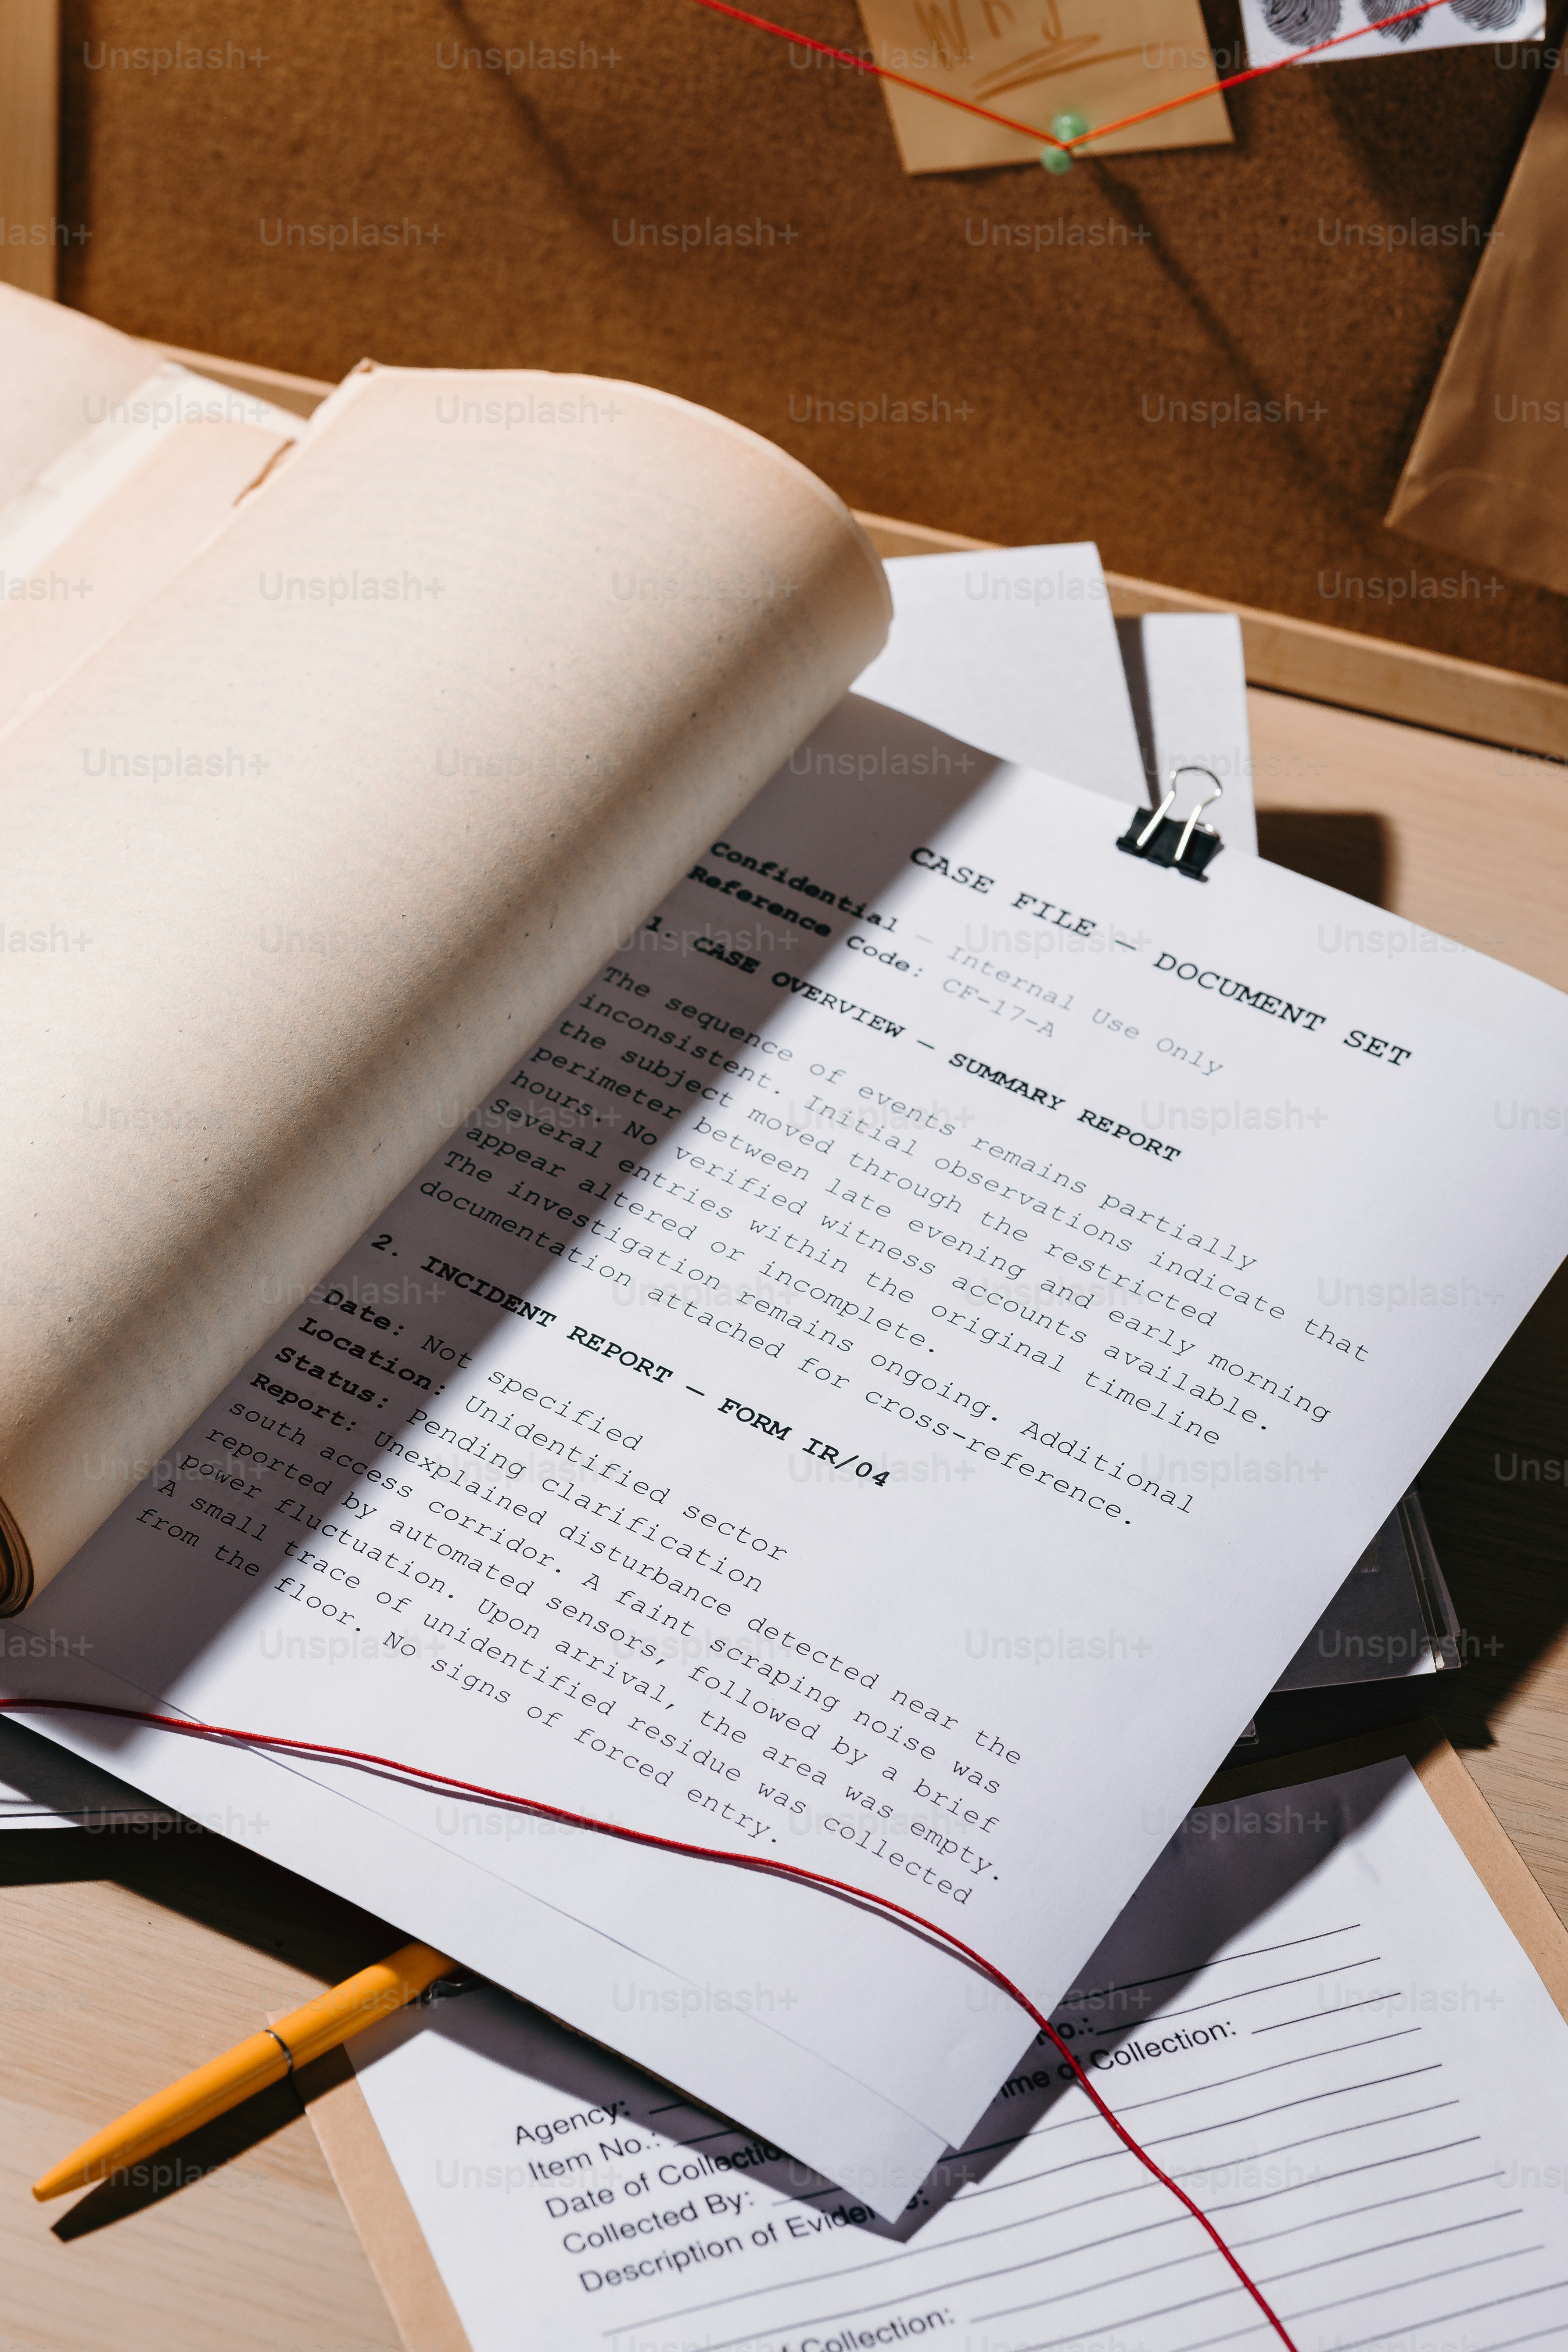 CASE FILE — DOCUMENT SET
Confidential – Internal Use Only
Reference Code: CF-17-A
1. CASE OVERVIEW — SUMMARY REPORT
The sequence of events remains partially
inconsistent. Initial observations indicate that
the subject moved through the restricted
perimeter between late evening and early morning
hours. No verified witness accounts available.
Several entries within the original timeline
appear altered or incomplete.
The investigation remains ongoing. Additional
documentation attached for cross-reference.
2. INCIDENT REPORT — FORM IR/04
Date: Not specified
Location: Unidentified sector
Status: Pending clarification
Report: Unexplained disturbance detected near the
south access corridor. A faint scraping noise was
reported by automated sensors, followed by a brief
power fluctuation. Upon arrival, the area was empty.
A small trace of unidentified residue was collected
from the floor. No signs of forced entry.
No.:
Agency:
Item No.:
Date of Collection
of Collection:
Collected By:
Description of Evidence:
of Collection:
Unsplash+